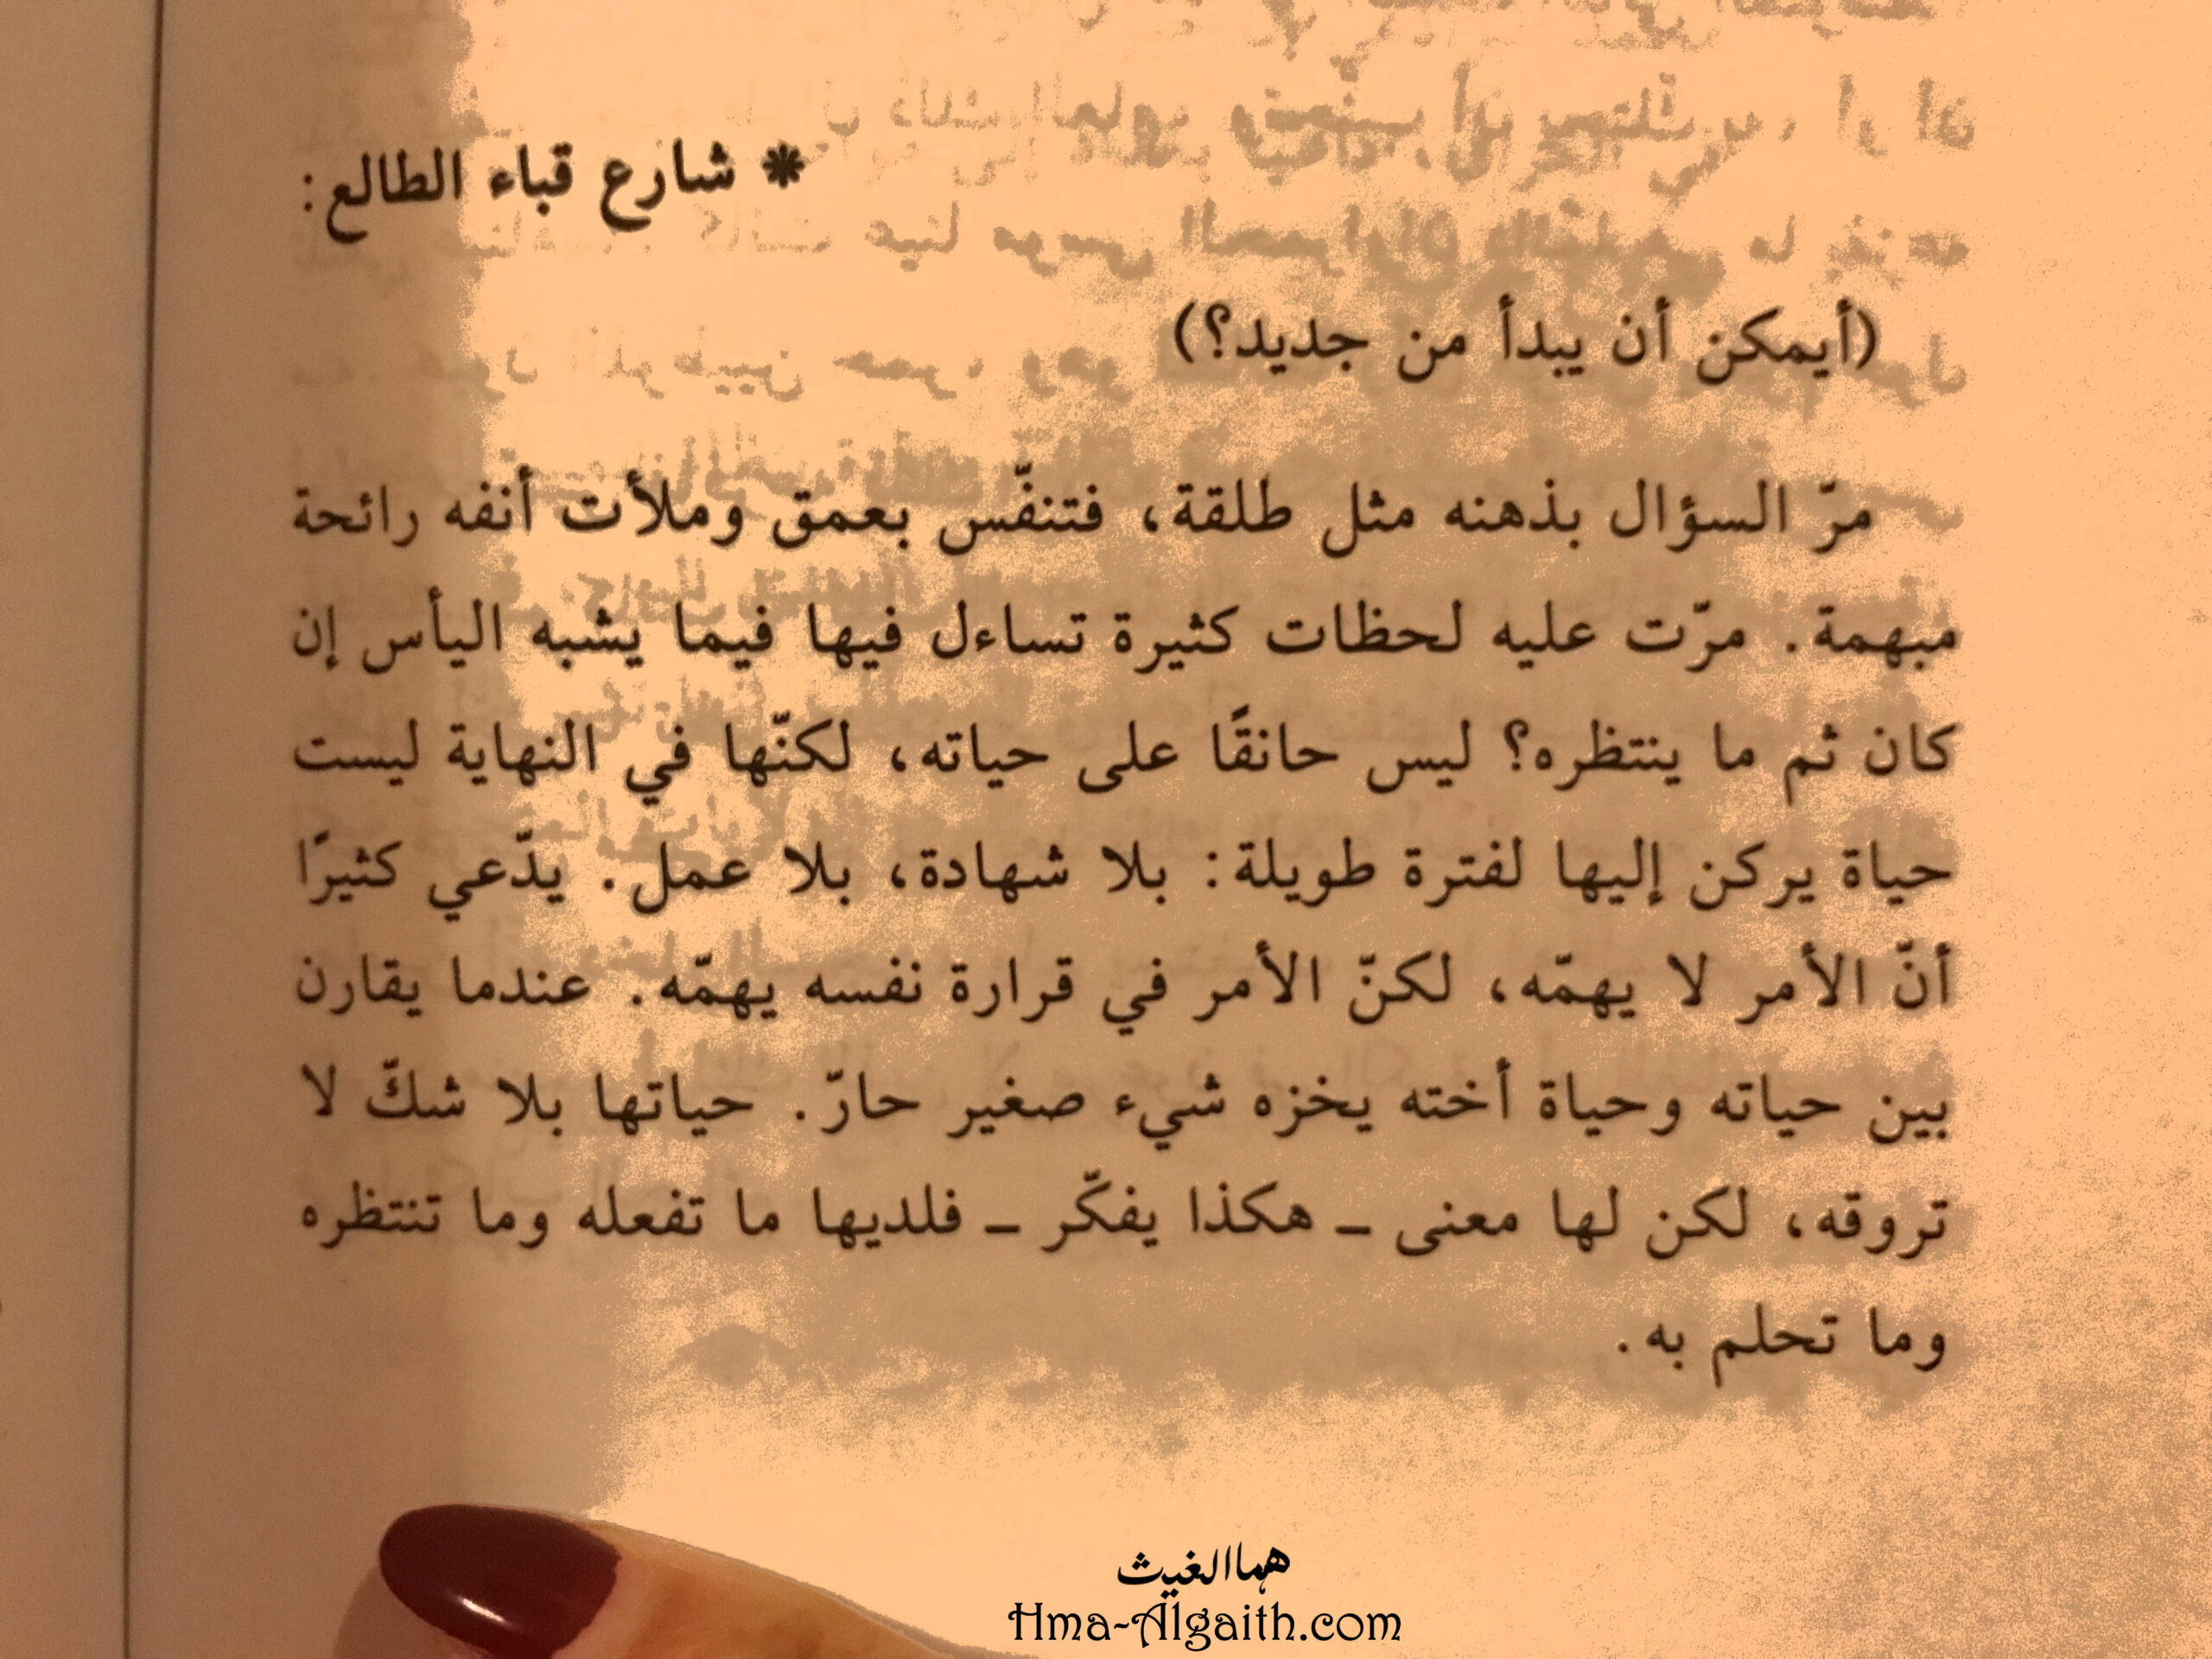 * شارع قباء الطالع:
(أيمكن أن يبدأ من جديد؟)
مرّ السؤال بذهنه مثل طلقة، فتنفّس بعمق وملأت أنفه رائحة
مبهمة. مرّت عليه لحظات كثيرة تساءل فيها فيما يشبه اليأس إن
كان ثم ما ينتظره؟ ليس حانقًا على حياته، لكنّها في النهاية ليست
حياة يركن إليها لفترة طويلة: بلا شهادة، بلا عمل. يدّعي كثيرًا
أنّ الأمر لا يهمّه، لكنّ الأمر في قرارة نفسه يهمّه. عندما يقارن
بين حياته وحياة أخته يخزه شيء صغير حارّ. حياتها بلا شكّ لا
تروقه، لكن لها معنى ـ هكذا يفكّر ـ فلديها ما تفعله وما تنتظره
وما تحلم به.
هما الغيث
Hma-Algaith.com